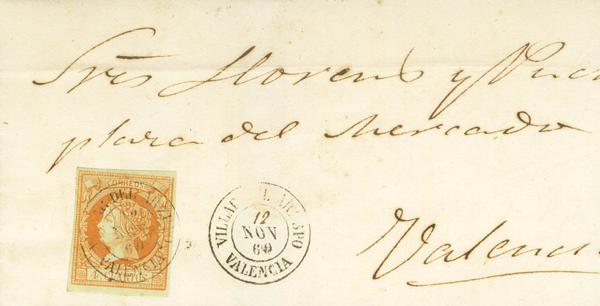 Sres Llorens y Puch
plaza del Mercado
Valenci
CORREOS
VALENCIA
VILLAF L ARZ SPO
12
NOV
60
VALENCIA